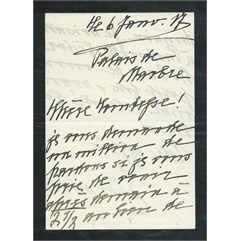 le 6 Janv. 17
Palais de
Marbre
Chère Comtesse!
je vous demande
un million de
pardons si je vous
prie de venir
après demain à
2 1/2 au lieu de